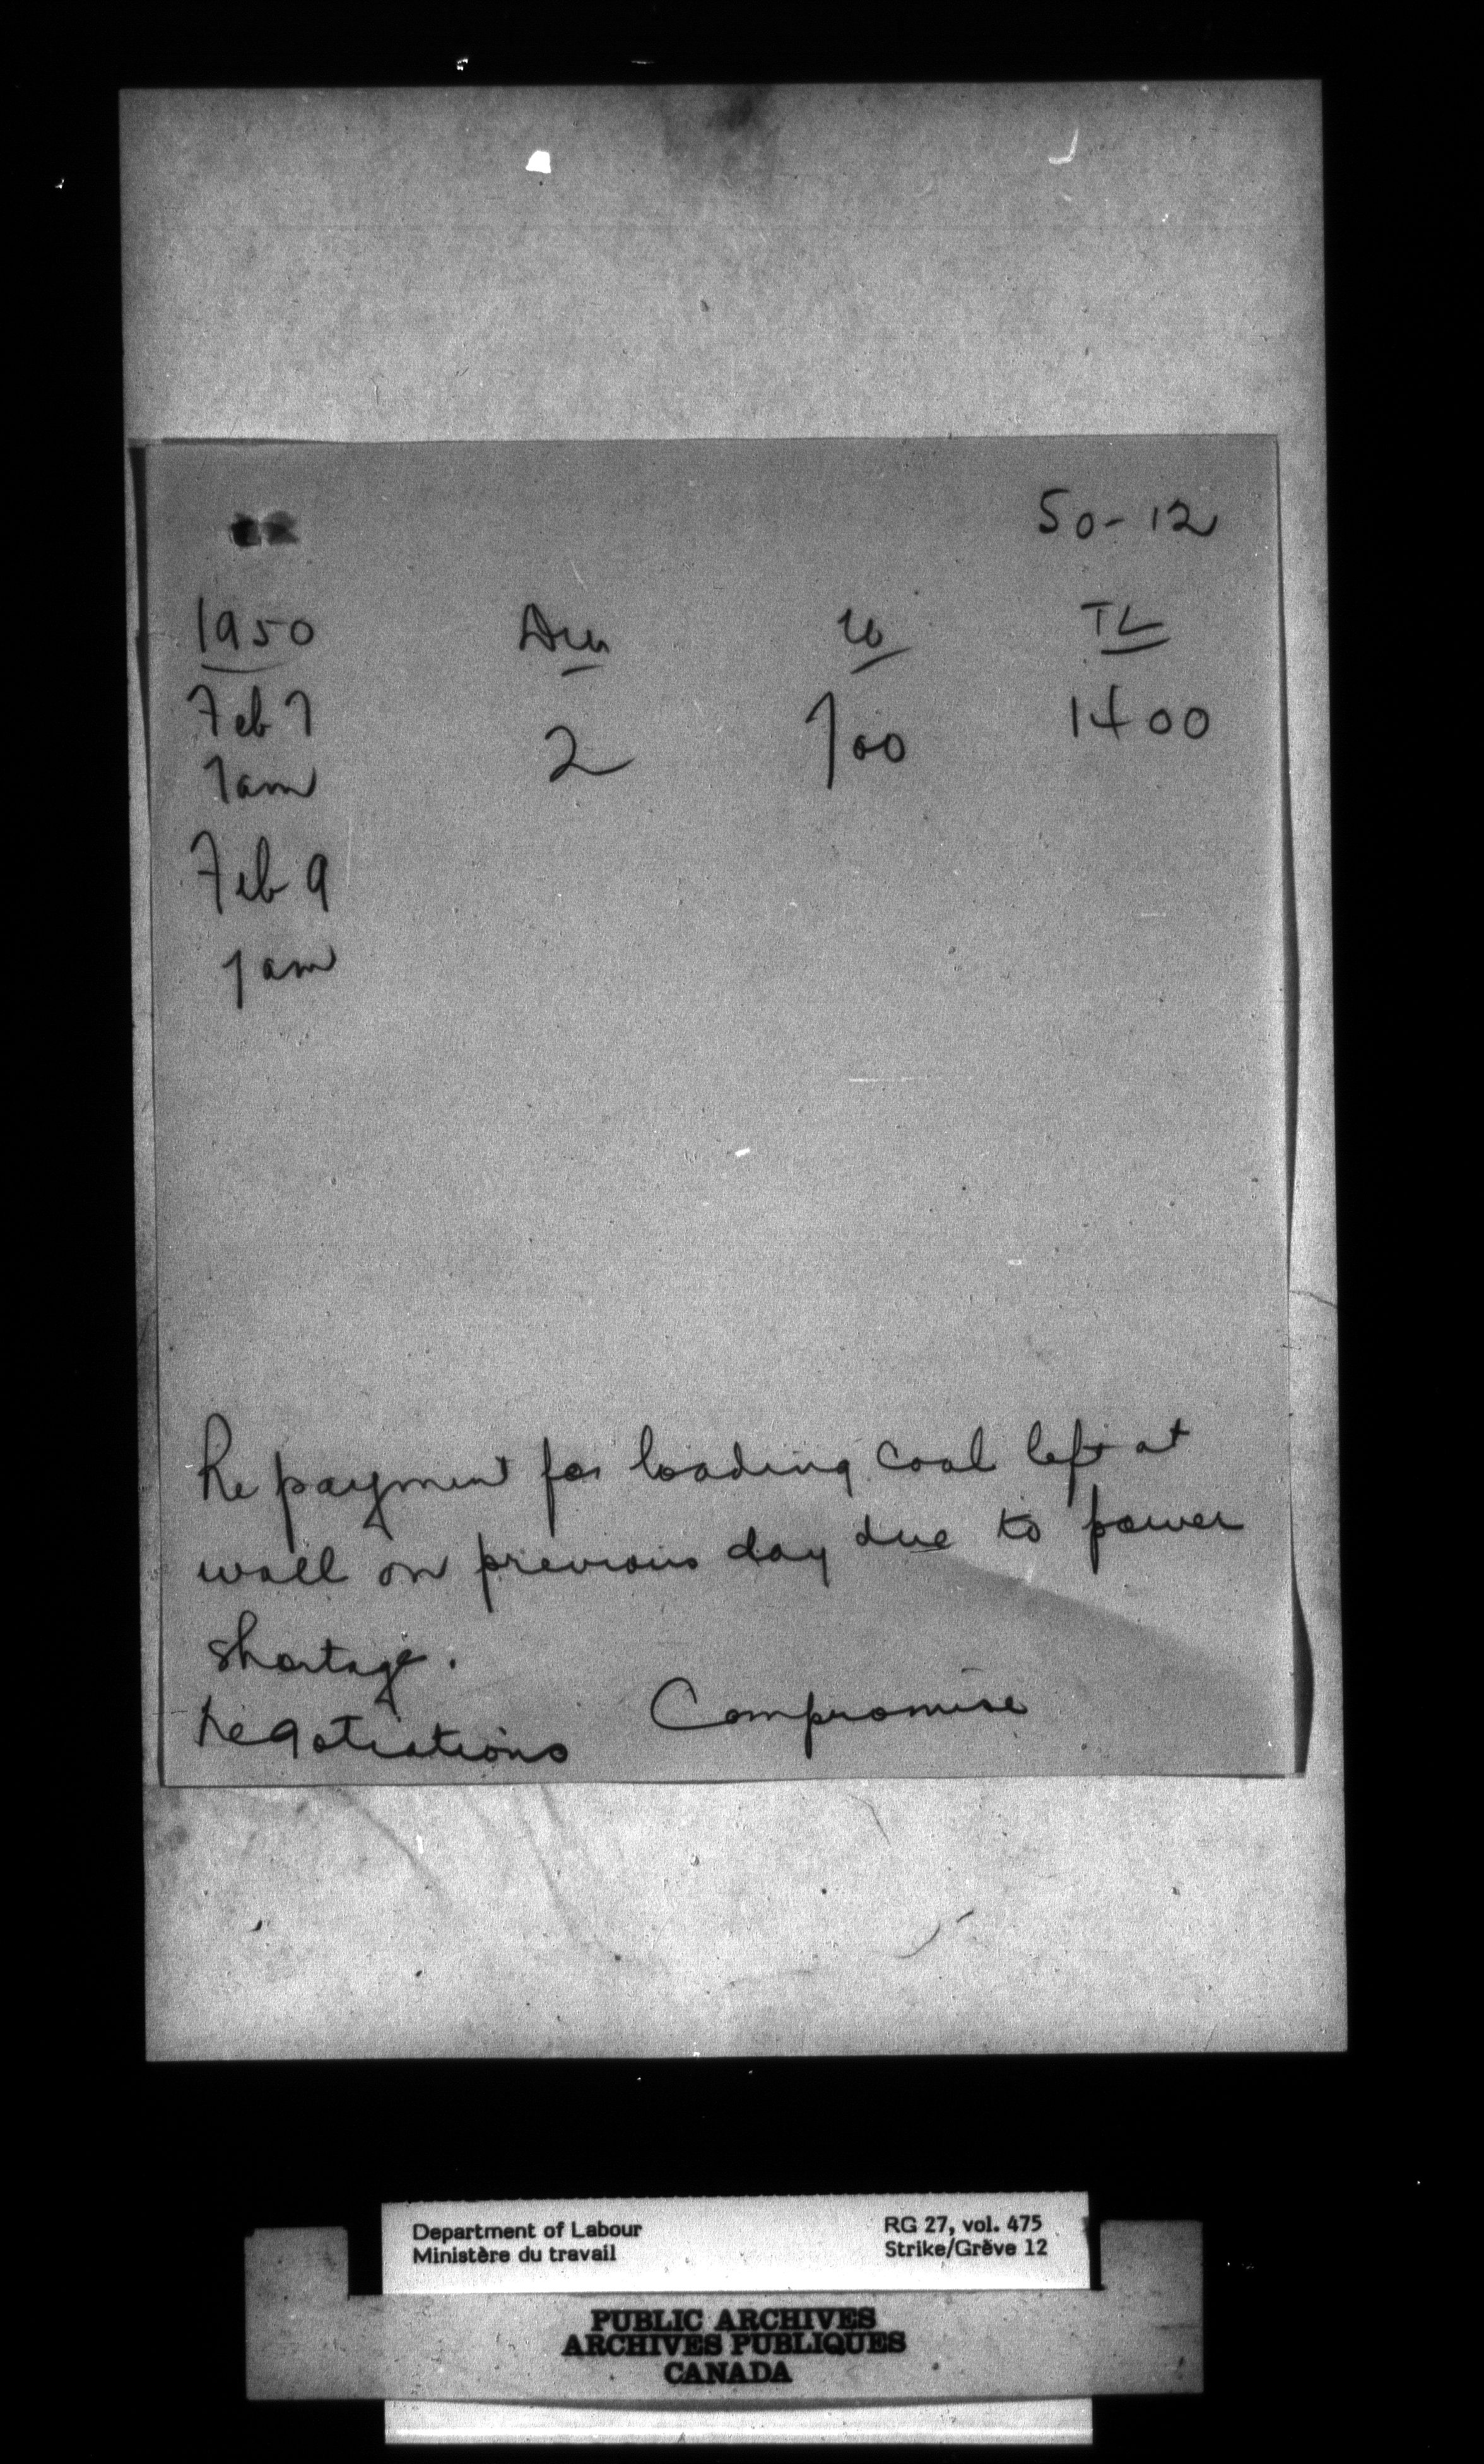 50-12
1950 Dur W TL
Feb 7 2 700 1400
7am
Feb 9
7am
Re payment for loading coal left at
wall on previous day due to power
shortage.
Negotiations Compromise
Department of Labour RG 27, vol. 475
Ministère du travail Strike/Grève 12
PUBLIC ARCHIVES
ARCHIVES PUBLIQUES
CANADA